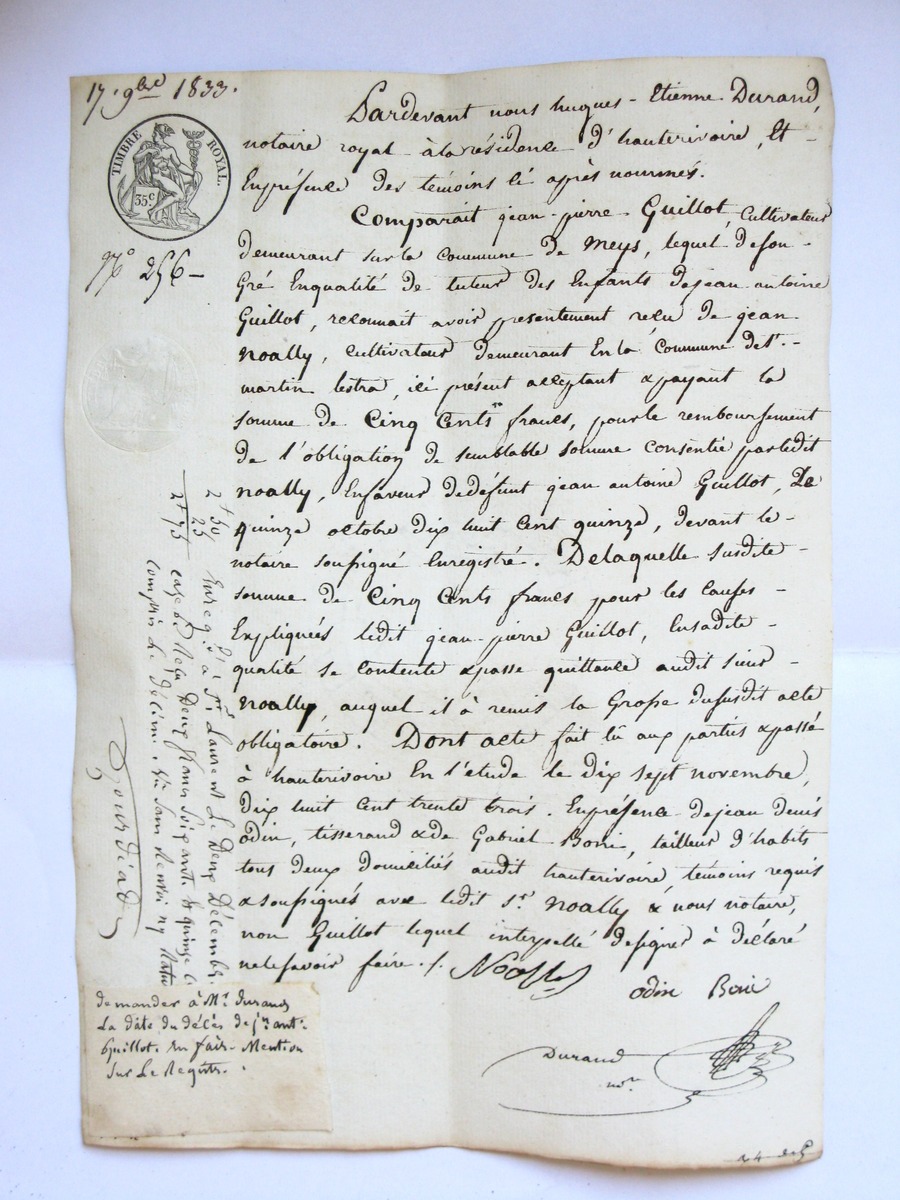 17. 9bre 1833.
TIMBRE ROYAL.
35c
No 256 —
Pardevant nous hugues - Etienne Durand,
notaire royal à la résidence d'hauterivoire, Et -
En présence des témoins ci après nommés.
Comparait jean-pierre Guillot, Cultivateur
demeurant sur la commune de meys, lequel de son -
Gré En qualité de tuteur des Enfants de jean antoine
Guillot, reconnait avoir présentement reçu de jean
noally, cultivateur demeurant En la commune de st. -
martin lestra, ici présent acceptant & payant la
somme de Cinq Cents francs, pour le remboursement
de l'obligation de semblable somme consentie par ledit
noally, En faveur de défunt jean antoine Guillot, Le
quinze octobre dix huit cent quinze, devant le -
notaire soussigné Enregistré. De laquelle susdite -
somme de Cinq Cents francs pour les causes -
Expliquées ledit jean-pierre Guillot, En sa dite -
qualité se contente & passe quittance audit sieur -
noally, auquel il à remis la Grosse du susdit acte
obligatoire. Dont acte fait lû aux parties & passé
à hauterivoire En l'étude le dix sept novembre,
dix huit cent trente trois. En présence de jean denis
odin, tisserand & de Gabriel Boiri, tailleur d'habits
tous deux domiciliés audit hauterivoire, témoins requis
& soussignés avec ledit sr. noally & nous notaire,
non Guillot lequel interpellé de signer à déclaré
ne le savoir faire. /.
Noally
odin Boiri
Durand
nore
2f 50
25
2f 75
Enregié à St Laurent Le Deux Décembre
case 2. Reçu Deux francs soixante & quinze c
compris Le décime
demander à Mr. durand
La date du décès de jn ant.
Guillot. En faire Mention
sur Le Registre.